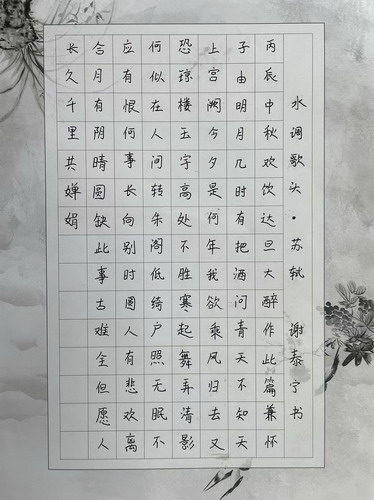 水调歌头·苏轼 谢泰宁书
丙辰中秋欢饮达旦大醉作此篇兼怀
子由明月几时有把酒问青天不知天
上宫阙今夕是何年我欲乘风归去又
恐琼楼玉宇高处不胜寒起舞弄清影
何似在人间转朱阁低绮户照无眠不
应有恨何事长向别时圆人有悲欢离
合月有阴晴圆缺此事古难全但愿人
长久千里共婵娟